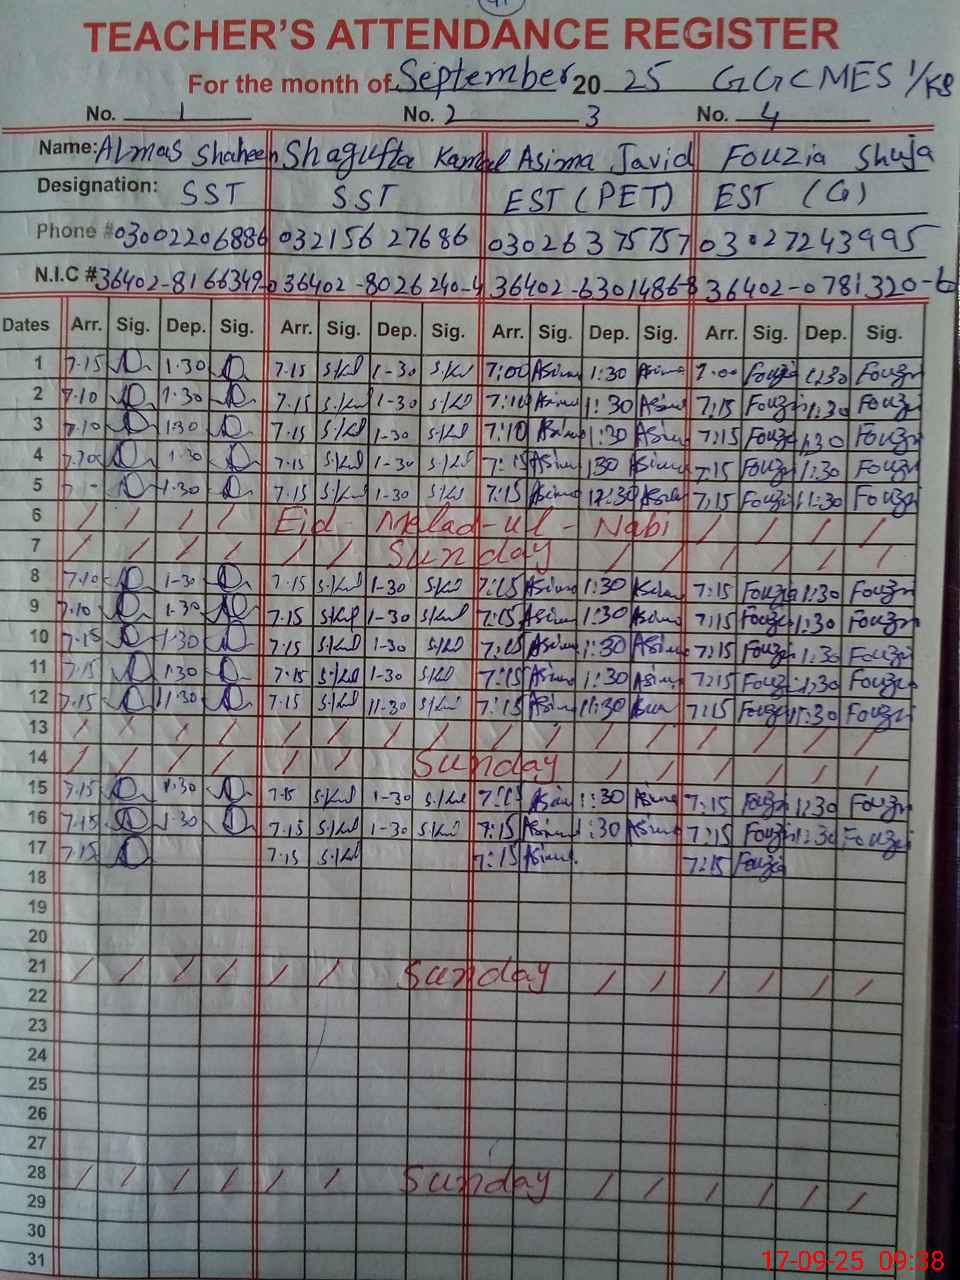 TEACHER'S ATTENDANCE REGISTER
For the month of September 20 25 GGCMES 1/KB
No. 1 No. 2 3 No. 4
Name: Almas Shaheen Shagufta Kamal Asima Javid Fouzia Shuja
Designation: SST SST EST (PET) EST (G)
Phone # 03002206886 03215627686 03026375757 03027243995
N.I.C # 36402-8166349-0 36402-8026240-4 36402-6301486-8 36402-0781320-6
Dates Arr. Sig. Dep. Sig. Arr. Sig. Dep. Sig. Arr. Sig. Dep. Sig. Arr. Sig. Dep. Sig.
1 7.15 1.30 7.15 S.Kml 1-30 S.Kml 7:00 Asima 1:30 Asima 7:00 Fouzia 1:30 Fouzia
2 7.10 1.30 7.15 S.Kml 1-30 S.Kml 7:10 Asima 1:30 Asima 7:15 Fouzia 1:30 Fouzia
3 7.10 1.30 7.15 S.Kml 1-30 S.Kml 7:10 Asima 1:30 Asima 7:15 Fouzia 1:30 Fouzia
4 7.10 1.30 7.15 S.Kml 1-30 S.Kml 7:15 Asima 1:30 Asima 7:15 Fouzia 1:30 Fouzia
5 1.30 7.15 S.Kml 1-30 S.Kml 7:15 Asima 12:30 Asima 7:15 Fouzia 11:30 Fouzia
6 / / / / Eid-Melad-ul-Nabi / / / /
7 / / / / / / Sunday / / / / / /
8 7.10 1-30 7.15 S.Kml 1-30 S.Kml 7:15 Asima 1:30 Asima 7:15 Fouzia 1:30 Fouzia
9 7.10 1.30 7.15 S.Kml 1-30 S.Kml 7:15 Asima 1:30 Asima 7:15 Fouzia 1:30 Fouzia
10 7.15 1.30 7.15 S.Kml 1-30 S.Kml 7:15 Asima 1:30 Asima 7:15 Fouzia 1:30 Fouzia
11 7.15 1.30 7.15 S.Kml 1-30 S.Kml 7:15 Asima 1:30 Asima 7:15 Fouzia 1:30 Fouzia
12 7.15 11.30 7.15 S.Kml 11-30 S.Kml 7:15 Asima 11:30 Asima 7:15 Fouzia 11:30 Fouzia
13 / / / / / / / / / / / / / / / /
14 / / / / / / Sunday / / / / / /
15 7.15 1.30 7.15 S.Kml 1-30 S.Kml 7:15 Asima 1:30 Asima 7:15 Fouzia 1:30 Fouzia
16 7.15 1.30 7.15 S.Kml 1-30 S.Kml 7:15 Asima 1:30 Asima 7:15 Fouzia 1:30 Fouzia
17 7.15 7.15 S.Kml 7:15 Asima 7:15 Fouzia
18
19
20
21 / / / / / / Sunday / / / / / /
22
23
24
25
26
27
28 / / / / / / Sunday / / / / / /
29
30
31
17-09-25 09:38